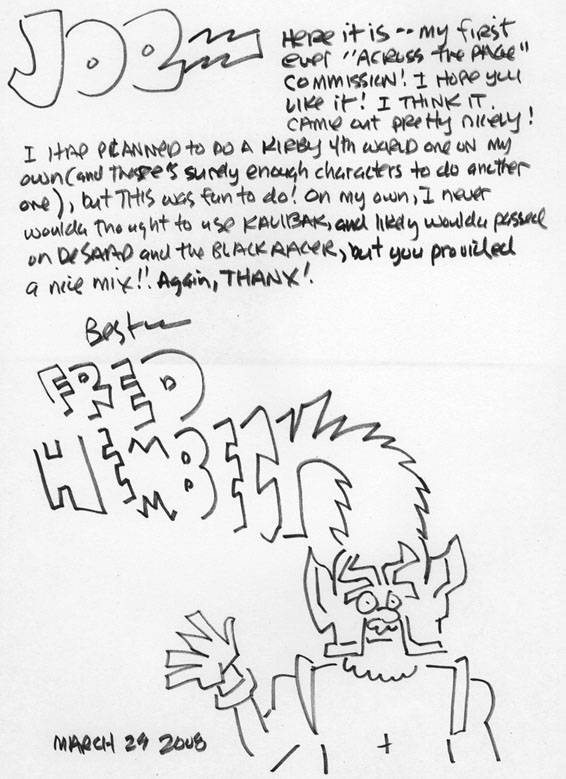 JOE
HERE it is -- my first
ever "ACROSS the PAGE"
COMMISSION! I HOPE you
LIKE it! I THINK IT
CAME out PRETTY NICELY!
I HAD PLANNED to DO A KIRBY 4th WORLD ONE ON MY
OWN (AND there's surely enough characters to do another
one), but THIS WAS fun to do! On my own, I never
woulda thought to use KALIBAK, and likely woulda passed
on DESAAD and the BLACK RACER, but you provided
a nice mix!! Again, THANX!
Best
FRED
HEMBECK
MARCH 29 2008